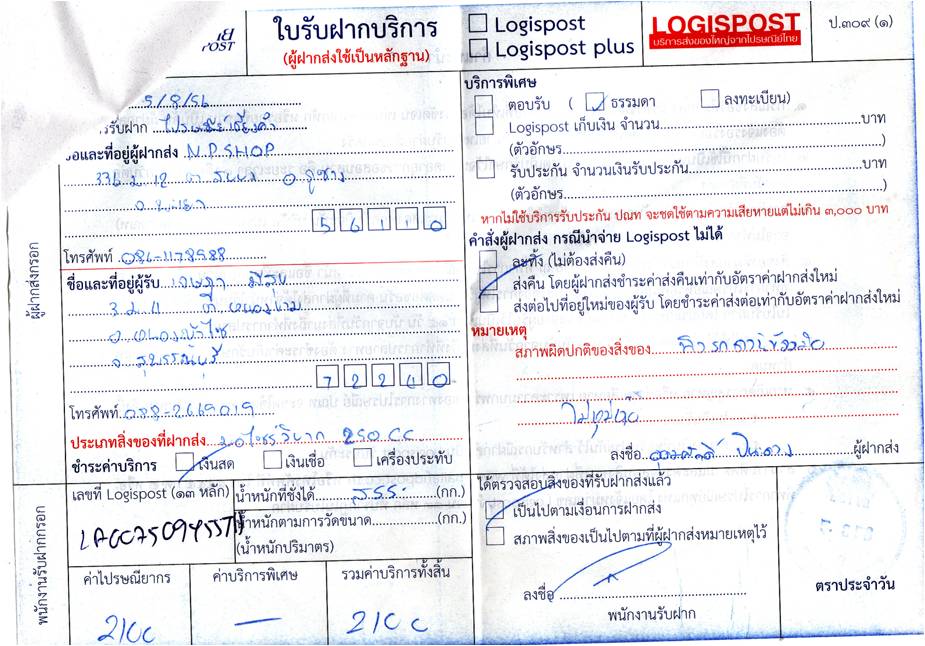 POST
ใบรับฝากบริการ
(ผู้ฝากส่งใช้เป็นหลักฐาน)
Logispost
Logispost plus
LOGISPOST
บริการส่งของใหญ่จากไปรษณีย์ไทย
ป.๓๐๙ (๑)
5/8/56
รับฝาก
ชื่อและที่อยู่ผู้ฝากส่ง N.P.SHOP
336 ม.12
56110
โทรศัพท์ 086-1178588
ชื่อและที่อยู่ผู้รับ
3 ม.11
อ.หนองหญ้าไซ
จ.สุพรรณบุรี
72240
โทรศัพท์ 088-2669019
ประเภทสิ่งของที่ฝากส่ง มอไซร์วิบาก 250 CC
ชำระค่าบริการ เงินสด เงินเชื่อ เครื่องประทับ
ผู้ฝากส่งกรอก
บริการพิเศษ
ตอบรับ ( ธรรมดา ลงทะเบียน)
Logispost เก็บเงิน จำนวน บาท
(ตัวอักษร )
รับประกัน จำนวนเงินรับประกัน บาท
(ตัวอักษร )
หากไม่ใช้บริการรับประกัน ปณท จะชดใช้ตามความเสียหายแต่ไม่เกิน ๓,๐๐๐ บาท
คำสั่งผู้ฝากส่ง กรณีนำจ่าย Logispost ไม่ได้
ละทิ้ง (ไม่ต้องส่งคืน)
ส่งคืน โดยผู้ฝากส่งชำระค่าส่งคืนเท่ากับอัตราค่าฝากส่งใหม่
ส่งต่อไปที่อยู่ใหม่ของผู้รับ โดยชำระค่าส่งต่อเท่ากับอัตราค่าฝากส่งใหม่
หมายเหตุ
สภาพผิดปกติของสิ่งของ
ไม่หุ้มห่อ
ลงชื่อ ผู้ฝากส่ง
พนักงานรับฝากกรอก
เลขที่ Logispost (๑๓ หลัก)
น้ำหนักที่ชั่งได้ (กก.)
น้ำหนักตามการวัดขนาด (กก.)
(น้ำหนักปริมาตร)
ค่าไปรษณียากร ค่าบริการพิเศษ รวมค่าบริการทั้งสิ้น
2100 — 2100
ได้ตรวจสอบสิ่งของที่รับฝากส่งแล้ว
เป็นไปตามเงื่อนการฝากส่ง
สภาพสิ่งของเป็นไปตามที่ผู้ฝากส่งหมายเหตุไว้
ลงชื่อ
พนักงานรับฝาก
ตราประจำวัน